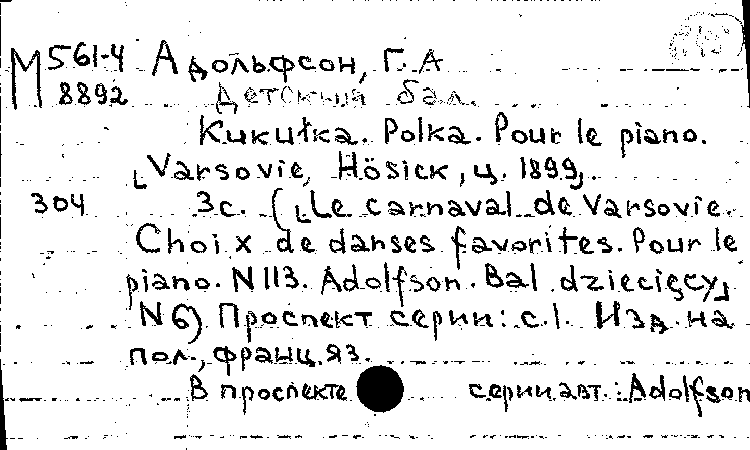 М 561-4 Адольфсон, Г. А
8892 Детский бал.
Kukułka. Polka. Pour le piano.
[Varsovie, Hösick, ц. 1899].
304 3с. ([Le carnaval de Varsovie.
Choix de danses favorites. Pour le
piano. N 113. Adolfson. Bal dziecięcy]
N 6) Проспект серии: с. 1. Изд. на
пол., франц. яз.
В проспекте серии авт.: Adolfson